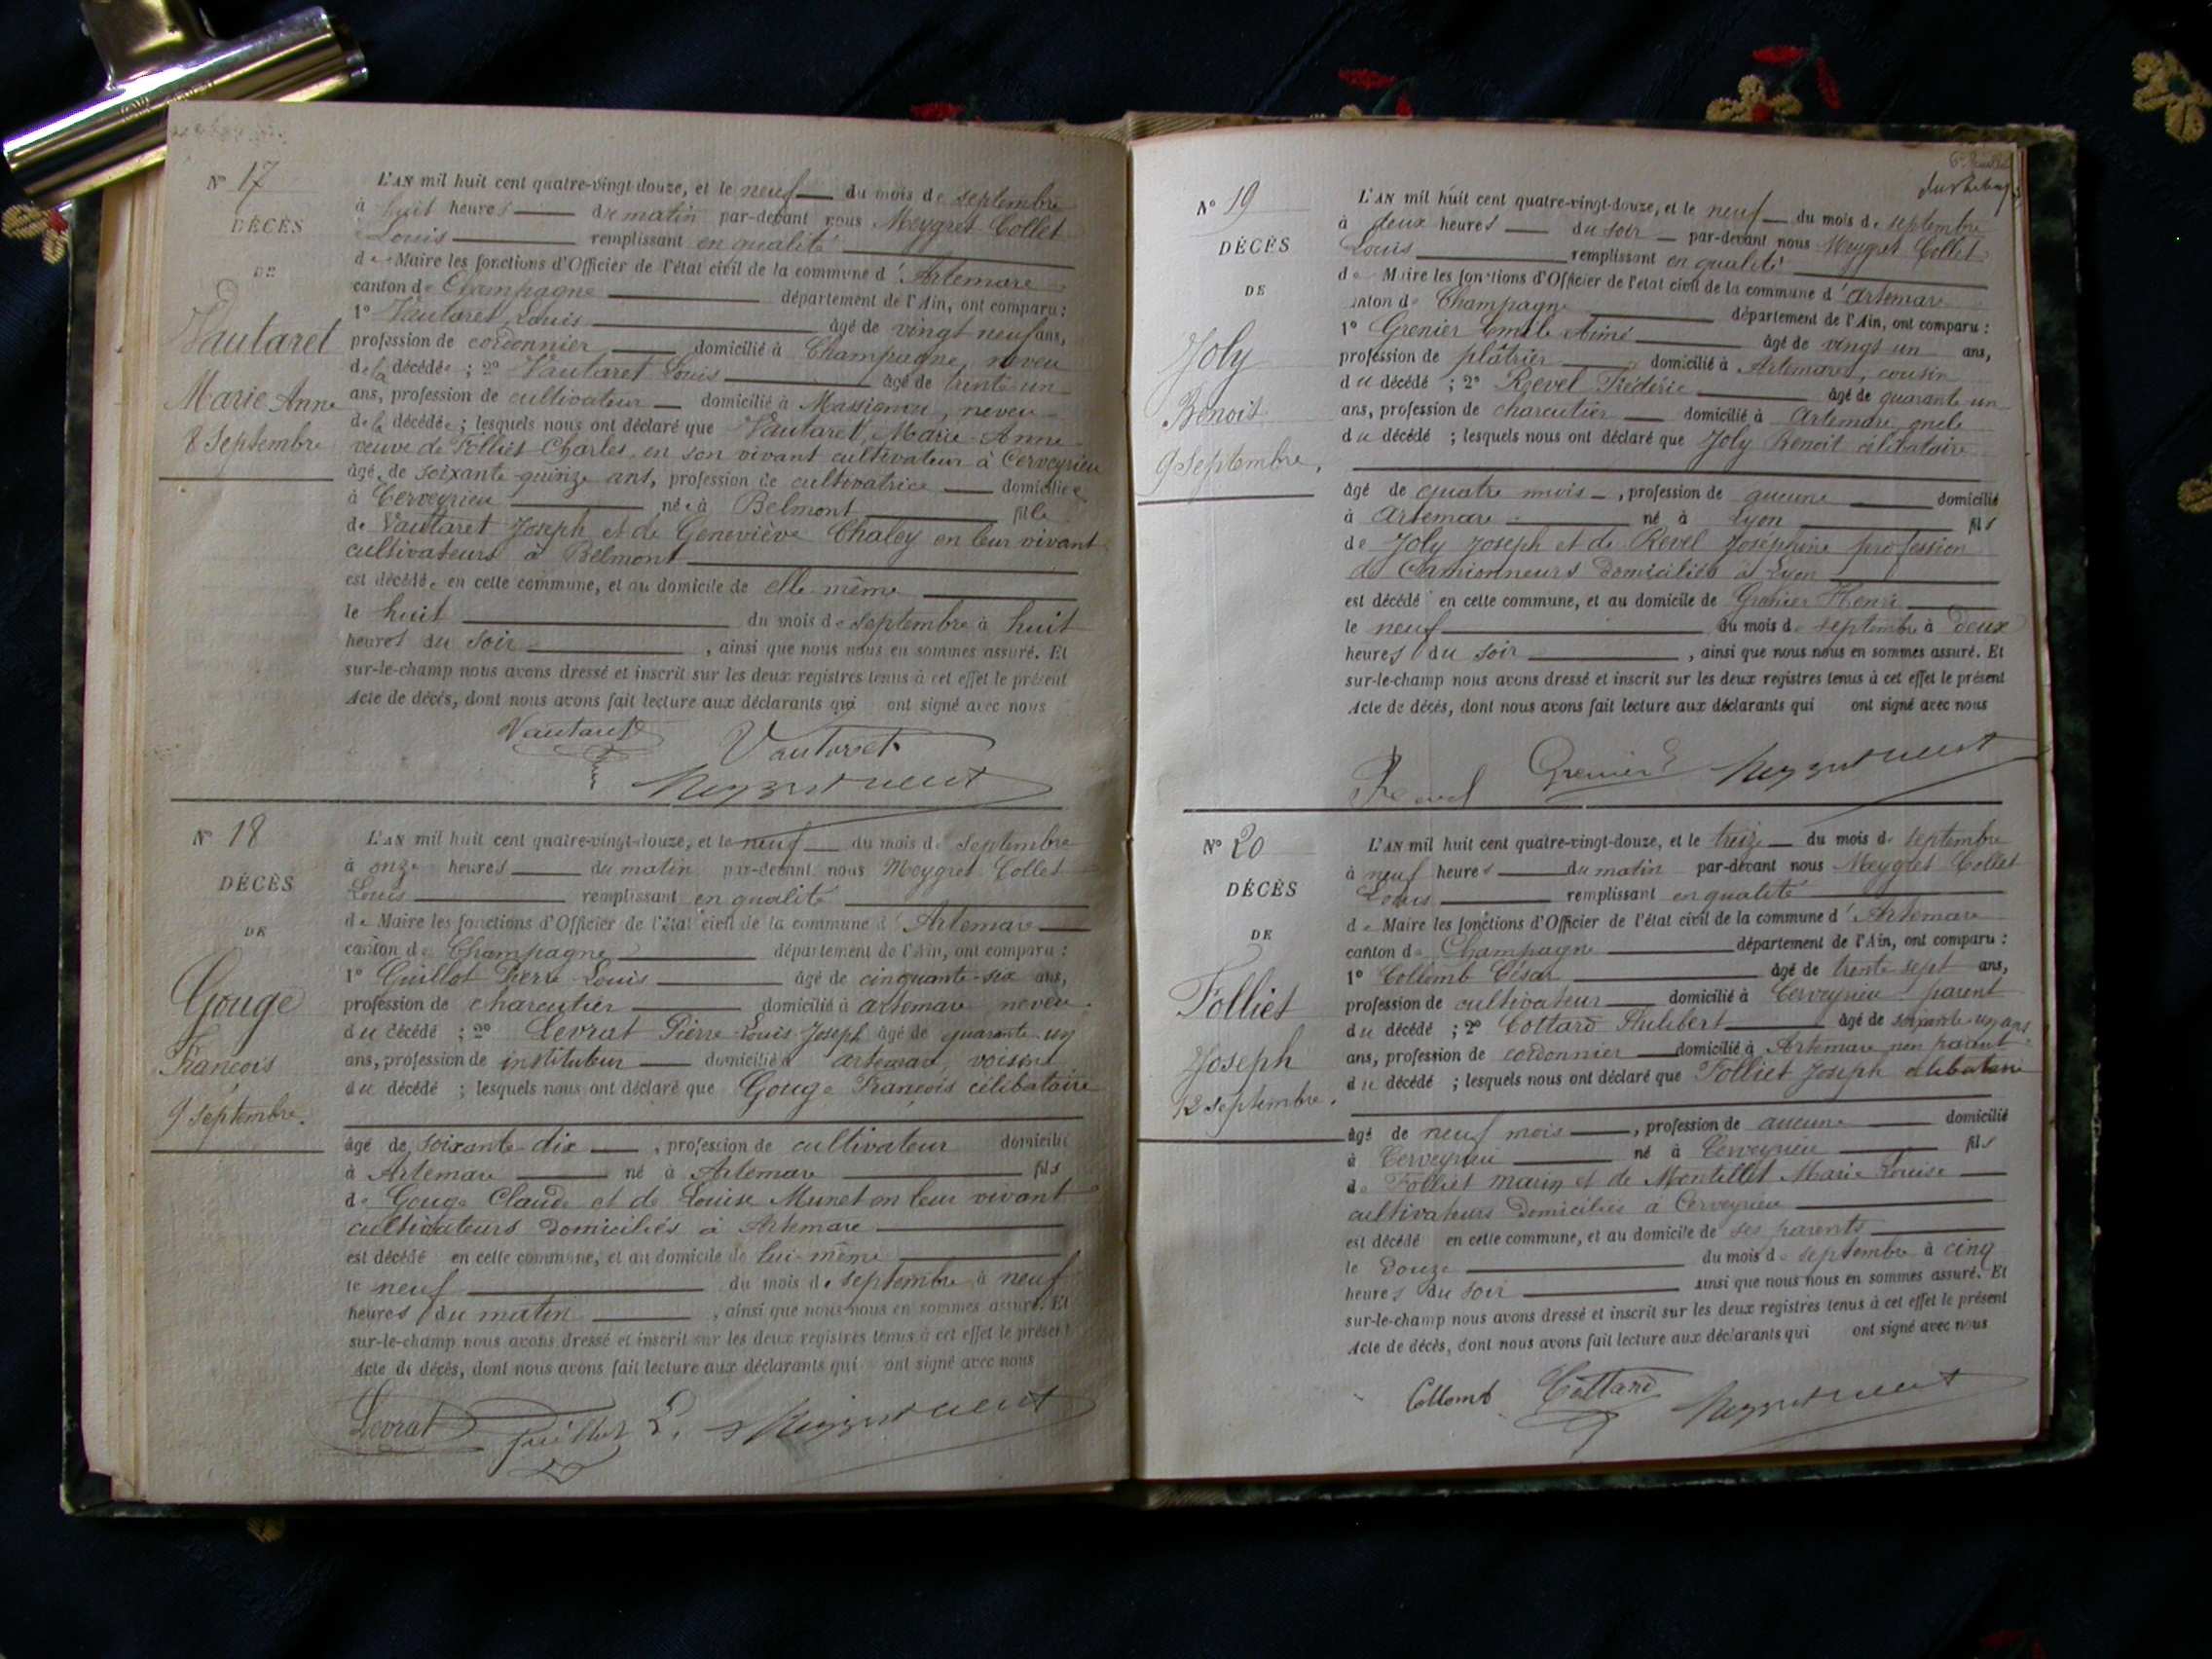 N° 17
DÉCÈS
DE
Vautaret
Marie Anne
8 Septembre
L'AN mil huit cent quatre-vingt-douze, et le neuf du mois de septembre
à huit heures du matin par-devant nous Meygret Collet
Louis remplissant en qualité
de Maire les fonctions d'Officier de l'état civil de la commune d'Artemare
canton de Champagne département de l'Ain, ont comparu :
1° Vautaret Louis âgé de vingt neuf ans,
profession de cordonnier domicilié à Champagne, neveu
de la décédée ; 2° Vautaret Louis âgé de trente un
ans, profession de cultivateur domicilié à Massignieu, neveu
de la décédée ; lesquels nous ont déclaré que Vautaret, Marie-Anne
veuve de Folliet Charles, en son vivant cultivateur à Cerveyrieu
âgée de soixante-quinze ans, profession de cultivatrice domiciliée
à Cerveyrieu née à Belmont fille
de Vautaret Joseph et de Geneviève Chaley en leur vivant
cultivateurs à Belmont
est décédée en cette commune, et au domicile de elle-même
le huit du mois de septembre à huit
heures du soir , ainsi que nous nous en sommes assuré. Et
sur-le-champ nous avons dressé et inscrit sur les deux registres tenus à cet effet le présent
Acte de décès, dont nous avons fait lecture aux déclarants qui ont signé avec nous
Vautaret
Vautaret
N° 18
DÉCÈS
DE
Gouge
François
9 Septembre.
L'AN mil huit cent quatre-vingt-douze, et le neuf du mois de septembre
à onze heures du matin par-devant nous Meygret Collet
Louis remplissant en qualité
de Maire les fonctions d'Officier de l'état civil de la commune d'Artemare
canton de Champagne département de l'Ain, ont comparu :
1° Guillot Pierre-Louis âgé de cinquante-six ans,
profession de charcutier domicilié à artemare neveu
du décédé ; 2° Levrat Pierre-Louis-Joseph âgé de quarante un
ans, profession de instituteur domicilié à artemare, voisin
du décédé ; lesquels nous ont déclaré que Gouge François célibataire
âgé de soixante-dix , profession de cultivateur domicilié
à Artemare né à Artemare fils
de Gouge Claude et de Louise Munet en leur vivant
cultivateurs domiciliés à Artemare
est décédé en cette commune, et au domicile de lui-même
le neuf du mois de septembre à neuf
heures du matin , ainsi que nous nous en sommes assuré. Et
sur-le-champ nous avons dressé et inscrit sur les deux registres tenus à cet effet le présent
Acte de décès, dont nous avons fait lecture aux déclarants qui ont signé avec nous
Levrat Guillot L.
N° 19
DÉCÈS
DE
Joly
Benoit
9 Septembre.
L'AN mil huit cent quatre-vingt-douze, et le neuf du mois de septembre
à deux heures du soir par-devant nous Meygret Collet
Louis remplissant en qualité
de Maire les fonctions d'Officier de l'état civil de la commune d'artemare
canton de Champagne département de l'Ain, ont comparu :
1° Grenier Emile Aimé âgé de vingt un ans,
profession de plâtrier domicilié à Artemare, cousin
du décédé ; 2° Revel Frédéric âgé de quarante un
ans, profession de charcutier domicilié à Artemare, oncle
du décédé ; lesquels nous ont déclaré que Joly Benoit célibataire
âgé de quatre mois , profession de aucune domicilié
à artemare né à Lyon fils
de Joly Joseph et de Revel Joséphine profession
de Camionneurs domiciliés à Lyon
est décédé en cette commune, et au domicile de Grenier Henri
le neuf du mois de septembre à deux
heures du soir , ainsi que nous nous en sommes assuré. Et
sur-le-champ nous avons dressé et inscrit sur les deux registres tenus à cet effet le présent
Acte de décès, dont nous avons fait lecture aux déclarants qui ont signé avec nous
Revel Grenier E
N° 20
DÉCÈS
DE
Folliet
Joseph
12 septembre.
L'AN mil huit cent quatre-vingt-douze, et le treize du mois de septembre
à neuf heures du matin par-devant nous Meygret Collet
Louis remplissant en qualité
de Maire les fonctions d'Officier de l'état civil de la commune d'Artemare
canton de Champagne département de l'Ain, ont comparu :
1° Collomb César âgé de trente-sept ans,
profession de cultivateur domicilié à Cerveyrieu parent
du décédé ; 2° Cottard Philibert âgé de soixante-un ans
ans, profession de cordonnier domicilié à Artemare non parent
du décédé ; lesquels nous ont déclaré que Folliet Joseph célibataire
âgé de neuf mois , profession de aucune domicilié
à Cerveyrieu né à Cerveyrieu fils
de Folliet Marin et de Montillet Marie Louise
cultivateurs domiciliés à Cerveyrieu
est décédé en cette commune, et au domicile de ses parents
le douze du mois de septembre à cinq
heures du soir ainsi que nous nous en sommes assuré. Et
sur-le-champ nous avons dressé et inscrit sur les deux registres tenus à cet effet le présent
Acte de décès, dont nous avons fait lecture aux déclarants qui ont signé avec nous
Collomb Cottard